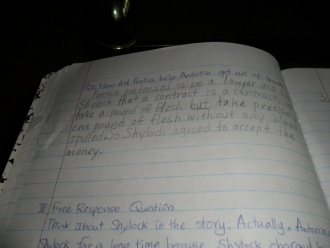 How did Portia help Antonio get out of
Portia pretended to be a lawyer and
Shylock that a contract is a contract
take a pound of flesh but take precise
one pound of flesh without any blood
spilled. So Shylock agiced to accept the
money.
II Free Response Question
Think about Shylock in the story. Actually, Antonio
Shylock for a long time because Shylock charged